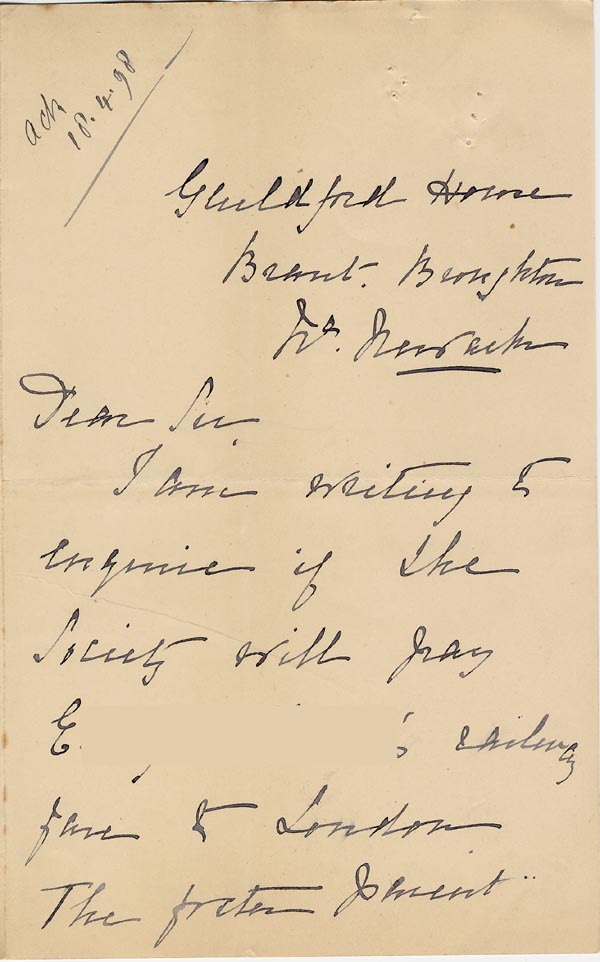 ack
18.4.98
Guildford House
Brant. Broughton
Nr. Newark
Dear Sir,
I am writing to
enquire if the
Society will pay
E 's railway
fare to London
The foster parent